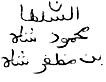 السلطا
ن
محمود شاه
بن مظفر شاه